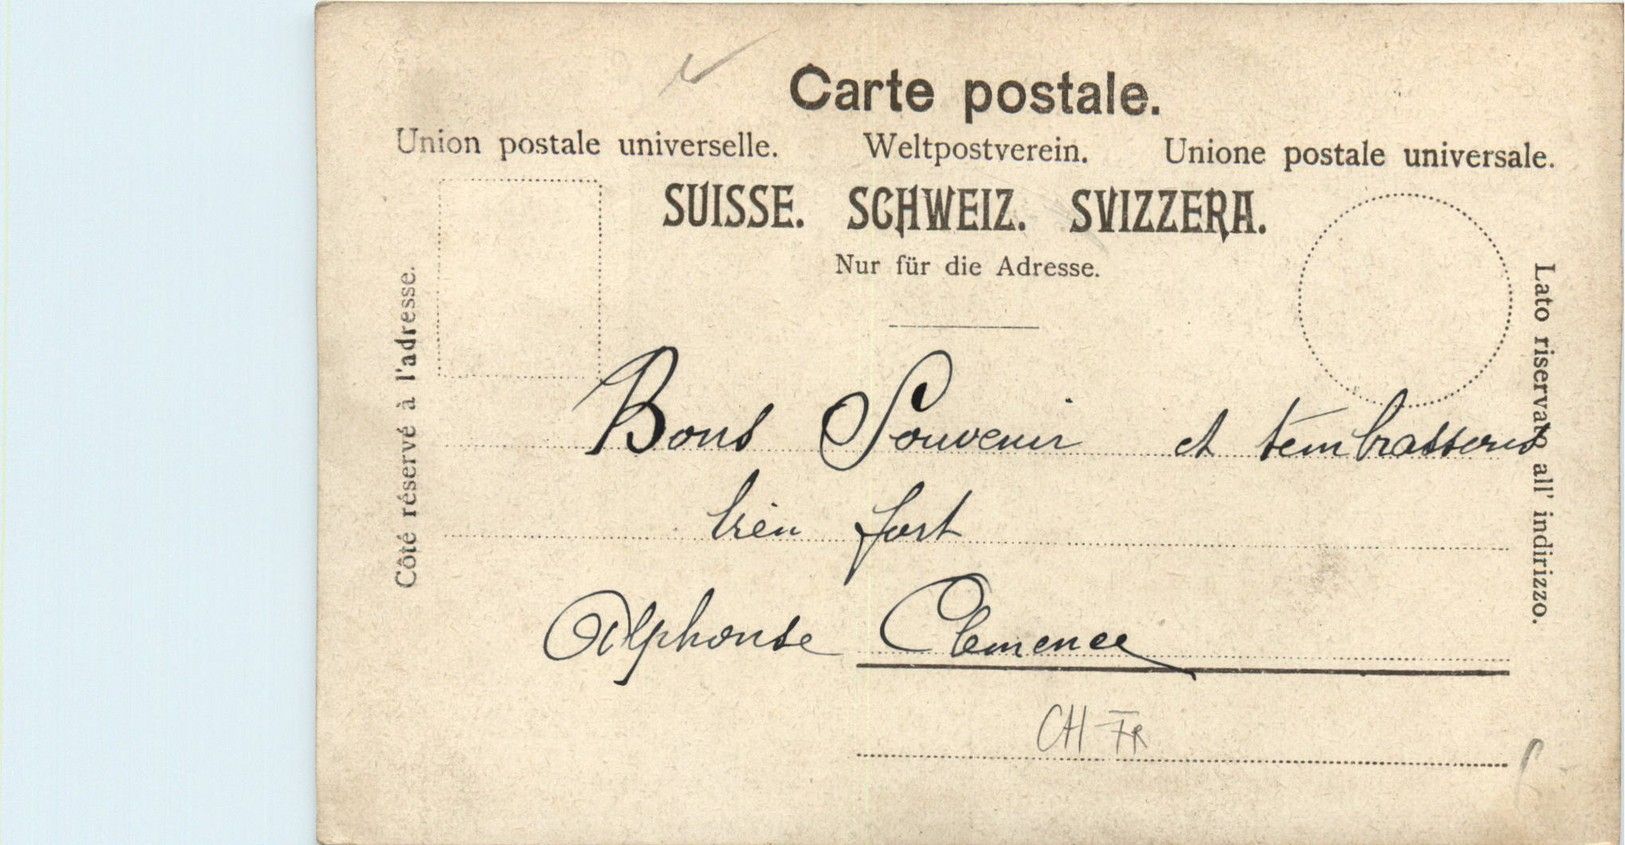 Carte postale.
Union postale universelle. Weltpostverein. Unione postale universale.
SUISSE. SCHWEIZ. SVIZZERA.
Nur für die Adresse.
Côté réservé à l'adresse.
Lato riservato all' indirizzo.
Bons Souvenir et t'embrassons
bien fort
Alphonse Clemence
CH FR